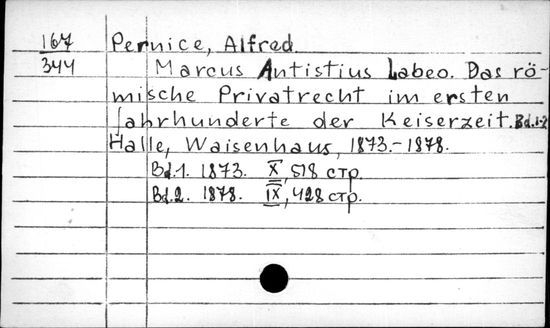 167 Pernice, Alfred
344 Marcus Antistius Labeo. Das rö-
mische Privatrecht im ersten
Jahrhunderte der Keiserzeit. Bd.1-2
Halle, Waisenhaus, 1873.-1878.
Bd.1. 1873. X, 518 стр.
Bd.2. 1878. IX, 428 стр.